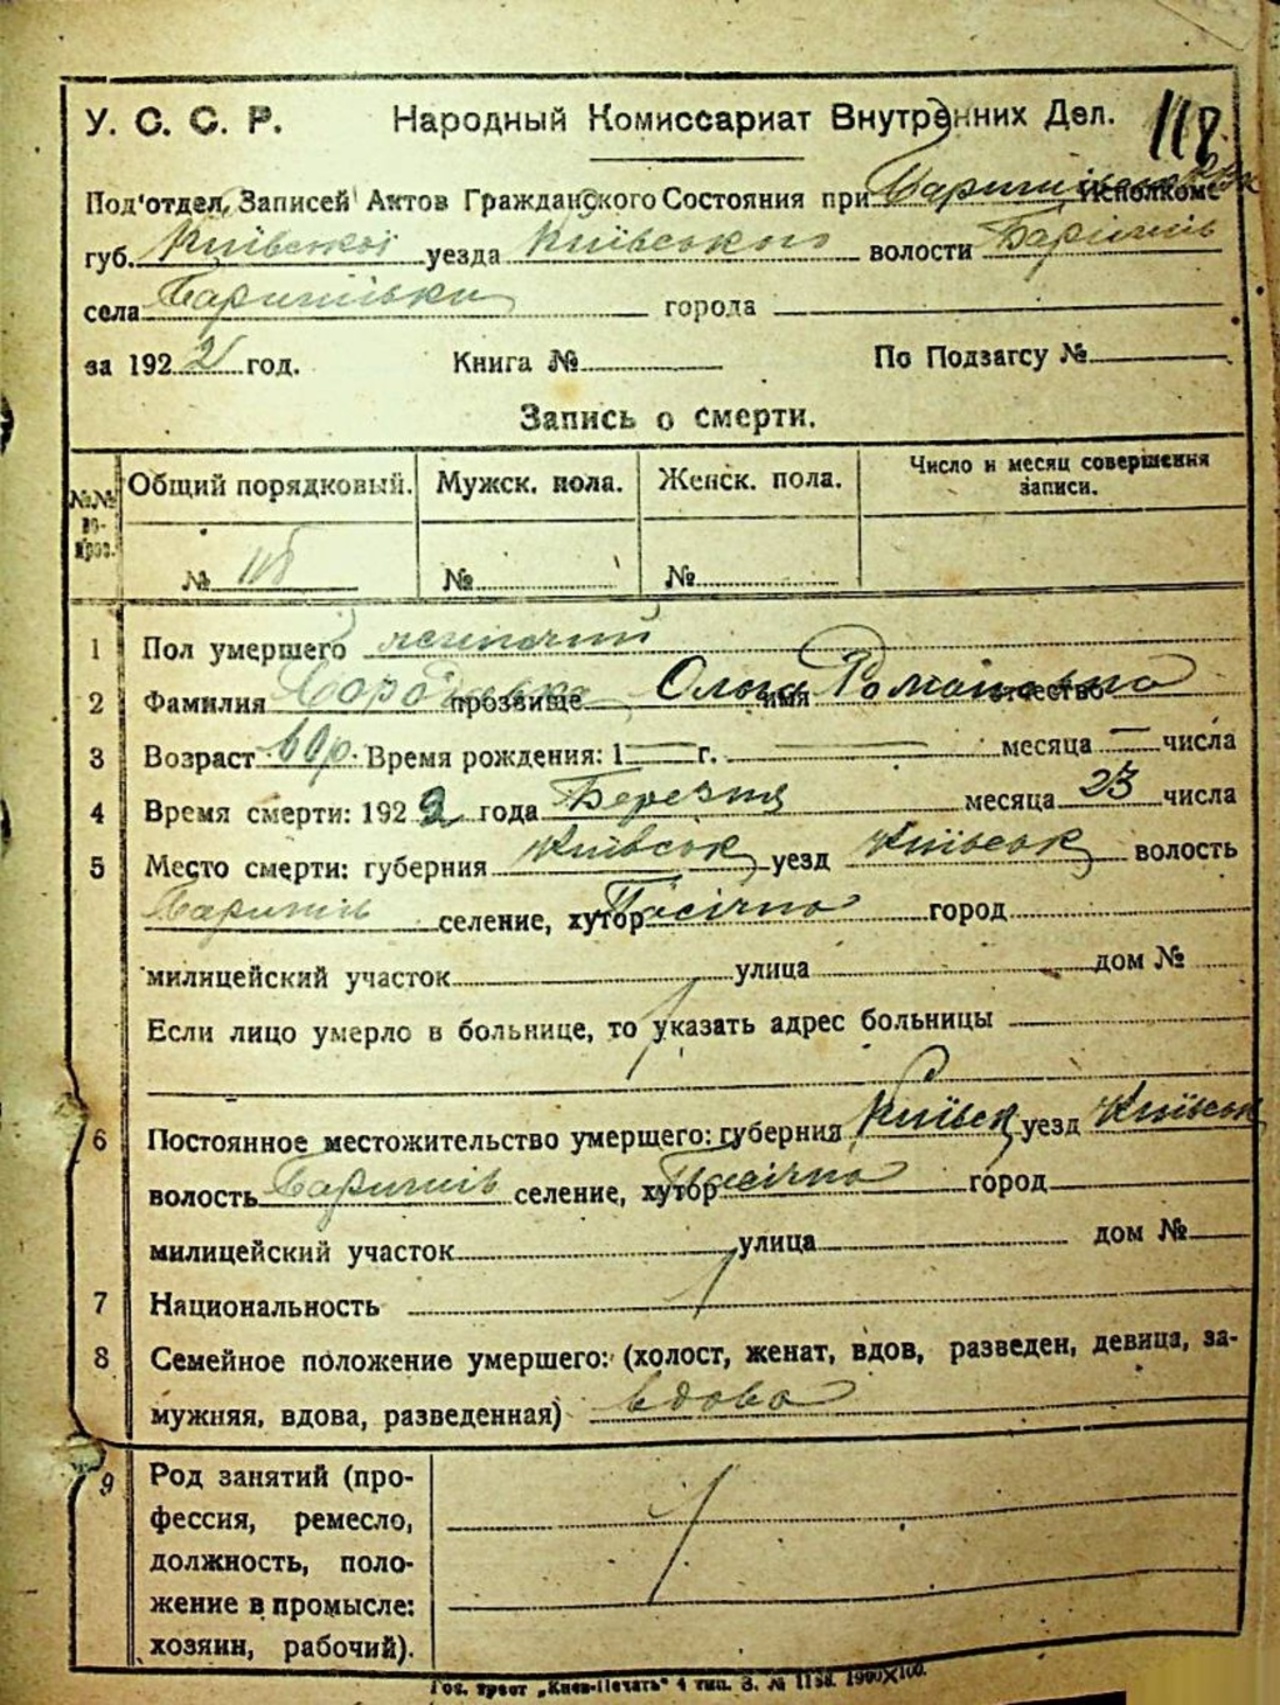 У. С. С. Р. Народный Комиссариат Внутренних Дел. 118
Под'отдел, Записей Актов Гражданского Состояния при Исполкоме
губ. Київської уезда Київського волости Баришів
села Баришівки города
за 1922 год. Книга № По Подзагсу №
Запись о смерти.
№№ во-прос. Общий порядковый. Мужск. пола. Женск. пола. Число и месяц совершения записи.
№ № №
1 Пол умершего жіночий
2 Фамилия прозвище Ольга имя Романовна отчество
3 Возраст 60 р. Время рождения: 1 — г. — месяца — числа
4 Время смерти: 1922 года Березня месяца 23 числа
5 Место смерти: губерния Київськ уезд Київськ волость
Баришів селение, хутор Пасічна город
милицейский участок улица дом №
Если лицо умерло в больнице, то указать адрес больницы
6 Постоянное местожительство умершего: губерния Київськ уезд Київськ
волость Баришів селение, хутор Пасічна город
милицейский участок улица дом №
7 Национальность
8 Семейное положение умершего: (холост, женат, вдов, разведен, девица, за-
мужняя, вдова, разведенная) вдова
9 Род занятий (про-
фессия, ремесло,
должность, поло-
жение в промысле:
хозяин, рабочий).
Гос. трест „Киев-Печать" 4 тип. З. № 1158. 1900X100.